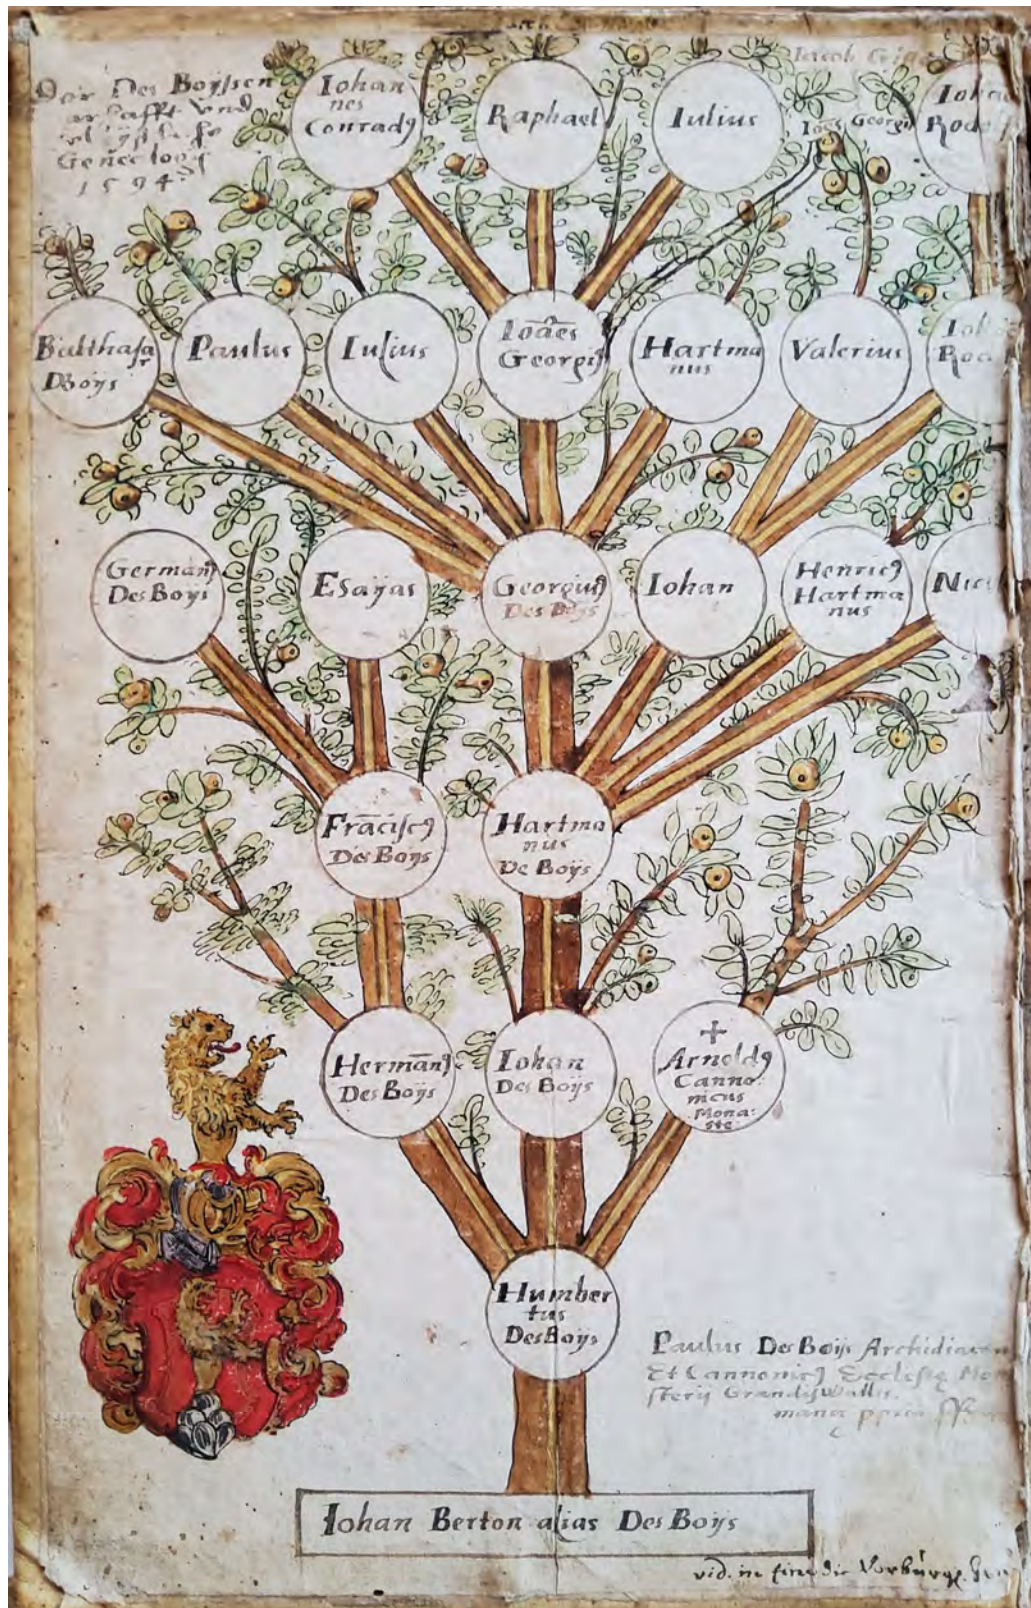 Der Des Boijsen
vnd
Geneelogi
1594
Iohan
nes
Conradꝯ
Raphael
Iulius
Iacob
Ioēs
Georgiꝯ
Rodol
Balthasa
r
DBoijs
Paulus
Iulius
Ioāēs
Georgiꝯ
Hartma
nus
Valerius
Ro
Germanꝯ
Des Boijs
Esaijas
Georgiuꝯ
Des Boijs
Iohan
Henricꝯ
Hartma
nus
Nic
Frāciscꝯ
Des Boijs
Hartma
nus
De Boijs
Hermān9
Des Boijs
Iohan
Des Boijs
+
Arnoldꝯ
Canno:
nicus
Mona:
ste:
Humber
tus
Des Boijs
Paulus Des Boijs Archidiacon
Et Cannonicꝯ Ecclesię Mon
sterij Grandis Vallis.
manu ppria
Iohan Berton alias Des Boijs
vid. in fine die Vorburg.